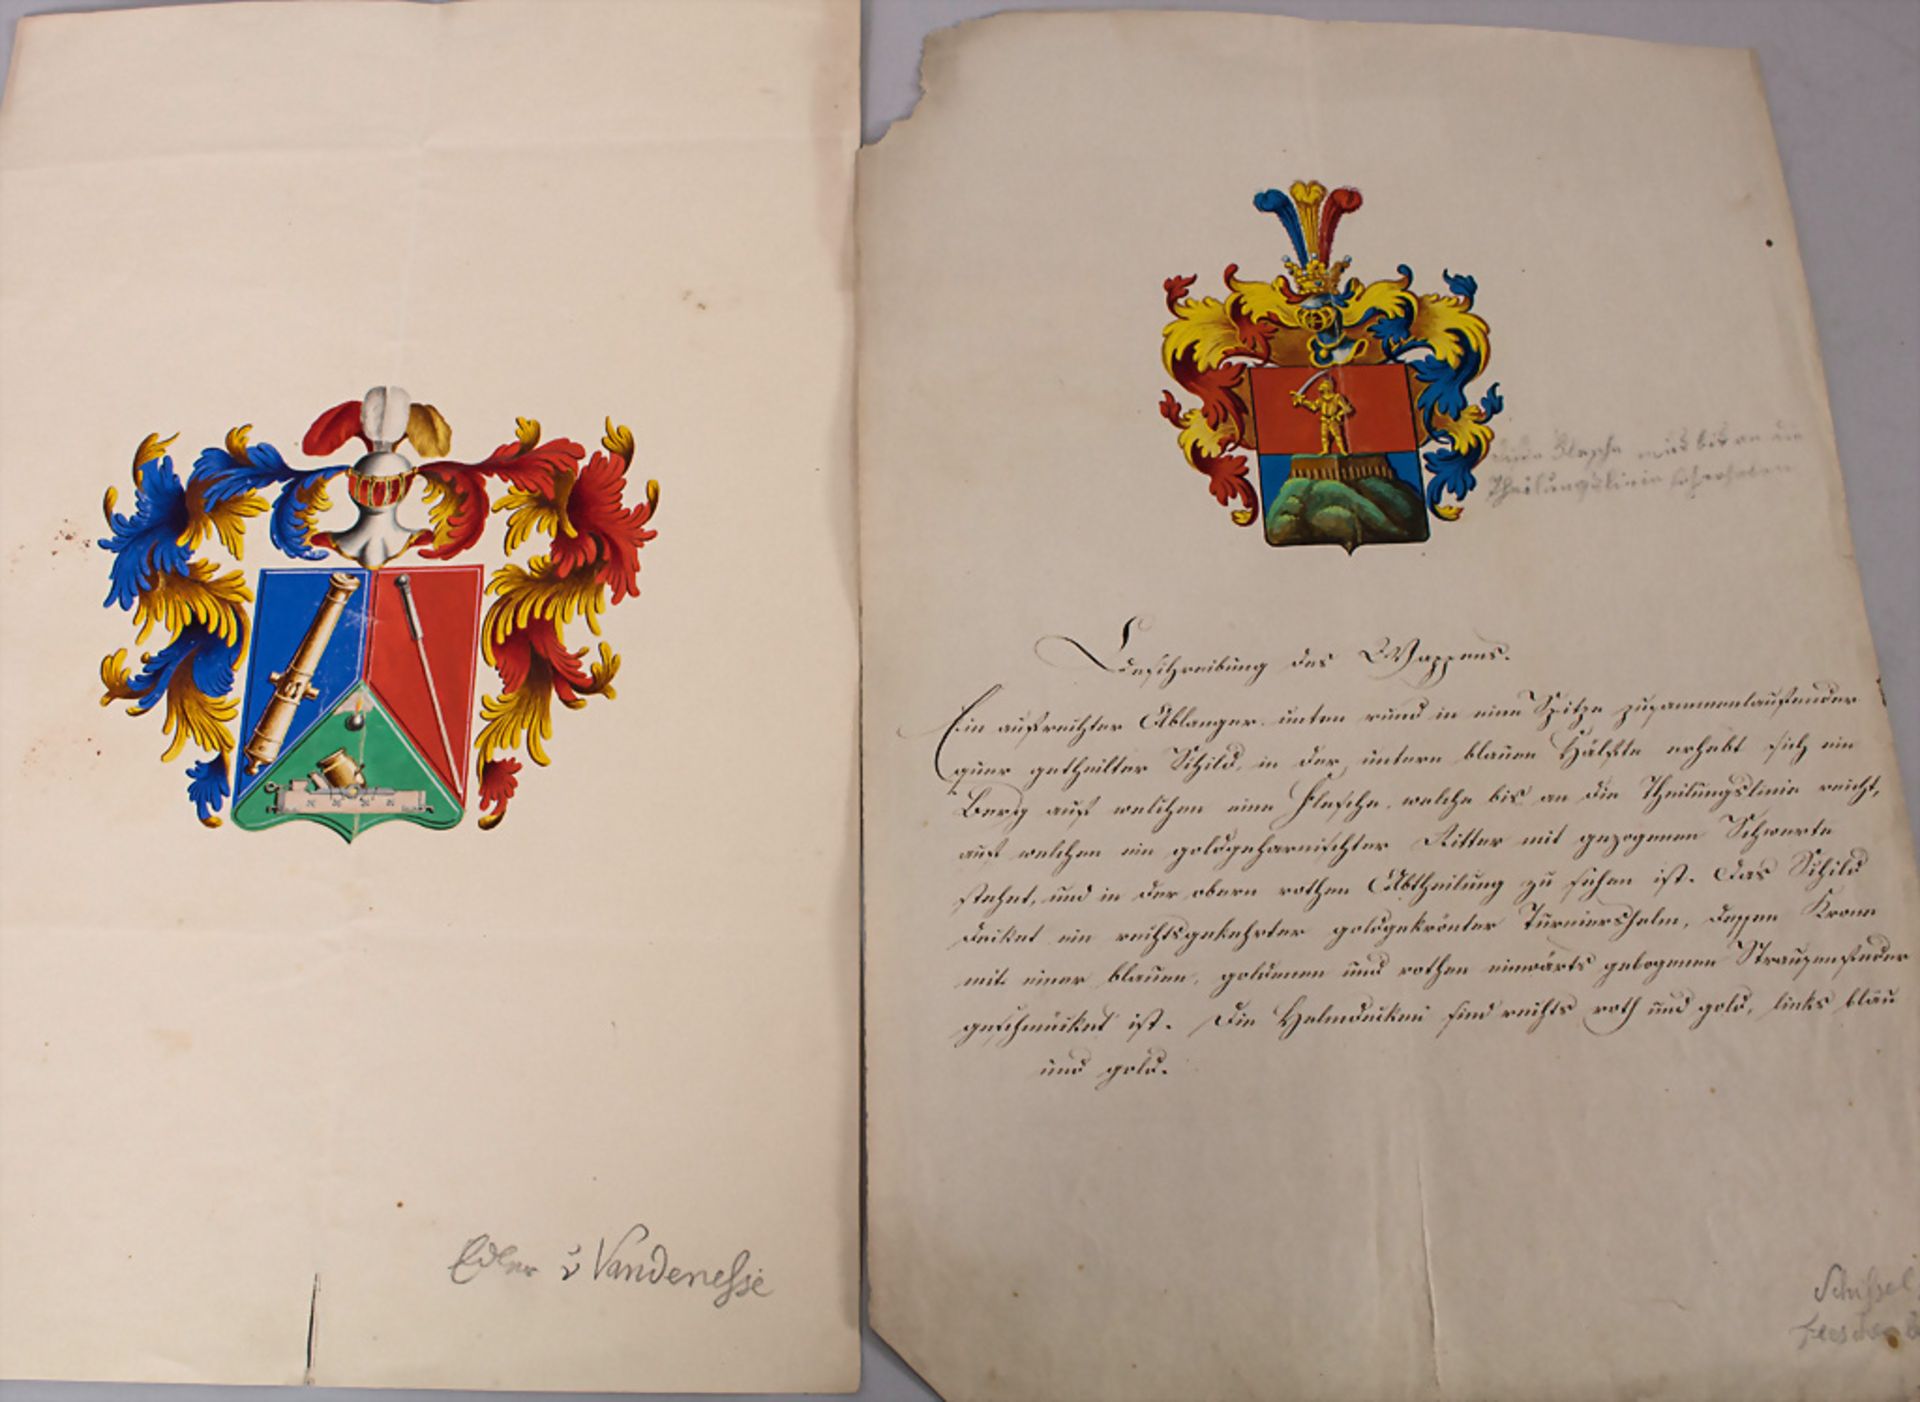 Edler v Vandenesse
Diese Flesche wird bis an die
Theilungslinie
Beschreibung des Wappens.
Ein aufrechter Ablanger unten rund in eine Spitze zusammenlaufender
quer getheilter Schild, in der untern blauen Hälfte erhebt sich ein
Berg auf welchen eine Flesche, welche bis an die Theilungslinie reicht,
auf welchen ein goldgeharnischter Ritter mit gezogenen Schwerte
stehet, und in der obern rothen Abtheilung zu sehen ist. Das Schild
decket ein rechtsgekehrter goldgekrönter Turniershelm, dessen Krone
mit einer blauen, goldenen und rothen einwärts gebogenen Straußenfeder
geschmücket ist. Die Helmdecken sind rechts roth und gold, links blau
und gold.
Schissel